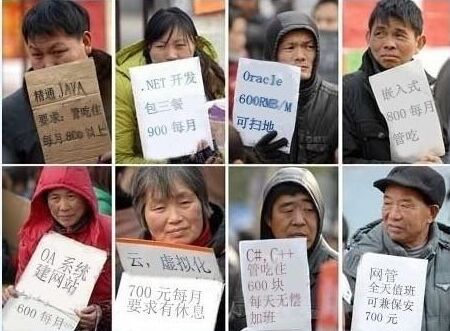 精通 JAVA
要求：管吃住
每月 800 以上
.NET 开发
包三餐
900 每月
Oracle
600RMB/M
可扫地
嵌入式
800 每月
管吃
OA 系统
建网站
600 每月
云，虚拟化
700 元每月
要求有休息
C#, C++
管吃住
600 块
每天无偿
加班
网管
全天值班
可兼保安
700 元